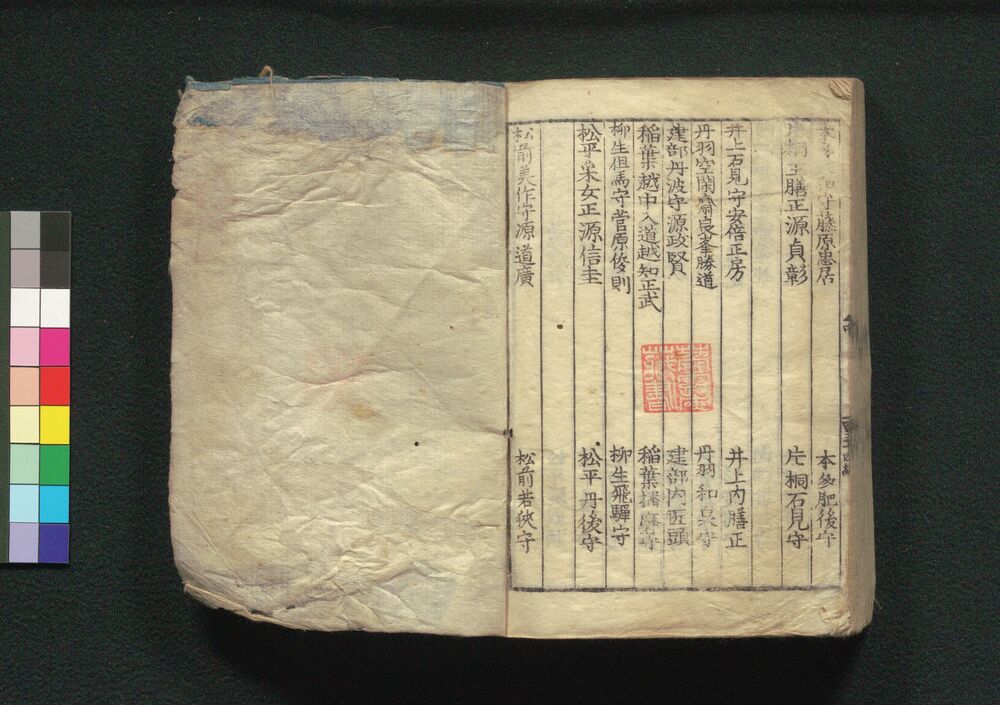 守藤原忠居 本多肥後守
主膳正源貞彰 片桐石見守
井上石見守安倍正房 井上内膳正
丹羽空閑齋良峯勝道 丹羽和泉守
建部丹波守源政賢 建部内匠頭
稲葉越中入道越知正武 稲葉播磨守
柳生但馬守菅原俊則 柳生飛騨守
松平采女正源信圭 松平丹後守
松前美作守源道廣 松前若狹守